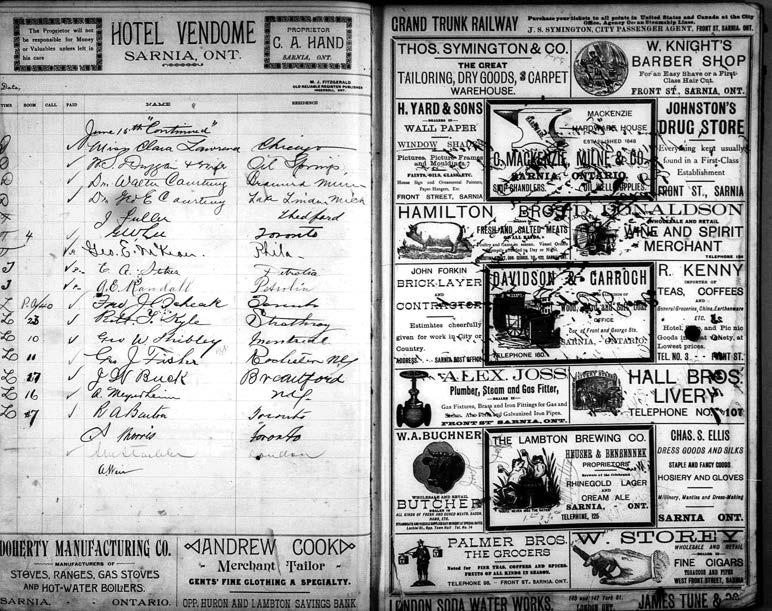 The Proprietor will not
be responsible for Money
or Valuables unless left in
his care
HOTEL VENDOME
SARNIA, ONT.
PROPRIETOR
C. A. HAND
SARNIA, ONT.
M. J. FITZGERALD
OLD RELIABLE REGISTER PUBLISHER
Date,
TIME ROOM CALL PAID NAME RESIDENCE
June 15th "Continued"
Miss Clara Lawrence Chicago
Oil Springs
Dr Walter Courtney
Dr Geo E Courtney
J Fuller Thedford
4 Toronto
Geo. E. Phila
Petrolia
Toronto
Strathroy
10 Geo W Shibley Montreal
11 Geo J Fisher Rochester N.Y.
27 J W Buck Brantford
16 A.
27 R A Barton Toronto
Morris Toronto
London
DOHERTY MANUFACTURING CO.
MANUFACTURERS OF
STOVES, RANGES, GAS STOVES
AND HOT-WATER BOILERS.
SARNIA - ONTARIO.
ANDREW COOK
Merchant Tailor
GENTS' FINE CLOTHING A SPECIALTY.
OPP. HURON AND LAMBTON SAVINGS BANK
GRAND TRUNK RAILWAY
Purchase your tickets to all points in United States and Canada at the City
Office, Agency Ocean Steamship Lines.
J. S. SYMINGTON, CITY PASSENGER AGENT, FRONT ST., SARNIA, ONT.
THOS. SYMINGTON & CO.
THE GREAT
TAILORING, DRY GOODS, & CARPET
WAREHOUSE.
W. KNIGHT'S
BARBER SHOP
For an Easy Shave or a First-
Class Hair Cut.
FRONT ST., SARNIA, ONT.
H. YARD & SONS
DEALERS IN
WALL PAPER
WINDOW SHADES
Pictures, Picture Frames
and Mouldings
PAINTS, OILS, GLASS, ETC.
House Sign and Ornamental Painters,
Paper Hangers, Etc.
FRONT STREET, SARNIA
MACKENZIE
HARDWARE HOUSE
ESTABLISHED 1848
C. MACKENZIE, MILNE & CO.
SARNIA, ONTARIO.
SHIP CHANDLERS. OIL WELL SUPPLIES.
JOHNSTON'S
DRUG STORE
Everything kept usually
found in a First-Class
Establishment
FRONT ST., SARNIA
HAMILTON BROS.
DEALERS IN
FRESH AND SALTED MEATS
OF ALL KINDS.
Poultry and Game in season. Vessel Orders
promptly attended to Day or Night.
D. DONALDSON
WHOLESALE AND RETAIL
WINE AND SPIRIT
MERCHANT
JOHN FORKIN
BRICK-LAYER
AND
CONTRACTOR
Estimates cheerfully
given for work in City or
Country.
ADDRESS. - SARNIA POST OFFICE
DAVIDSON & CARROCH
WOOD, COAL AND
OFFICE
Cor. of Front and George Sts.
SARNIA, - ONTARIO.
TELEPHONE 160.
R. KENNY
IMPORTER OF
TEAS, COFFEES
AND
General Groceries, China, Earthenware
ETC.
Hotel, and Picnic
Goods in Great Variety, at
Lowest prices.
TEL. NO. 3. - FRONT ST.
ALEX. JOSS
DEALER IN
Plumber, Steam and Gas Fitter,
Gas Fixtures, Brass and Iron Fittings for Gas and
Plain and Galvanized Iron Pipes.
FRONT ST SARNIA, ONT.
HALL BROS.
LIVERY
TELEPHONE NO. 107
W. A. BUCHNER
WHOLESALE AND RETAIL
BUTCHER
DEALER IN
ALL KINDS OF FRESH AND CURED MEATS, BACON,
HAMS, ETC.
THE LAMBTON BREWING CO.
HEUSER & BENSENNEK
PROPRIETORS
Brewers of the Celebrated
RHINEGOLD LAGER
AND
CREAM ALE
SARNIA, ONT.
TELEPHONE, 125
CHAS. S. ELLIS
DRESS GOODS AND SILKS
STAPLE AND FANCY GOODS
HOSIERY AND GLOVES
Millinery, Mantles and Dress-Making
SARNIA ONT.
PALMER BROS.
THE GROCERS
Noted for FINE TEAS, COFFEES AND SPICES.
FRUITS OF ALL KINDS IN SEASON.
TELEPHONE 98. - FRONT ST. SARNIA, ONT.
W. STOREY
WHOLESALE AND RETAIL
DEALER IN
FINE CIGARS
TOBACCOS AND PIPES
WEST FRONT STREET, SARNIA
LONDON SODA WATER WORKS
JAMES TUNE &